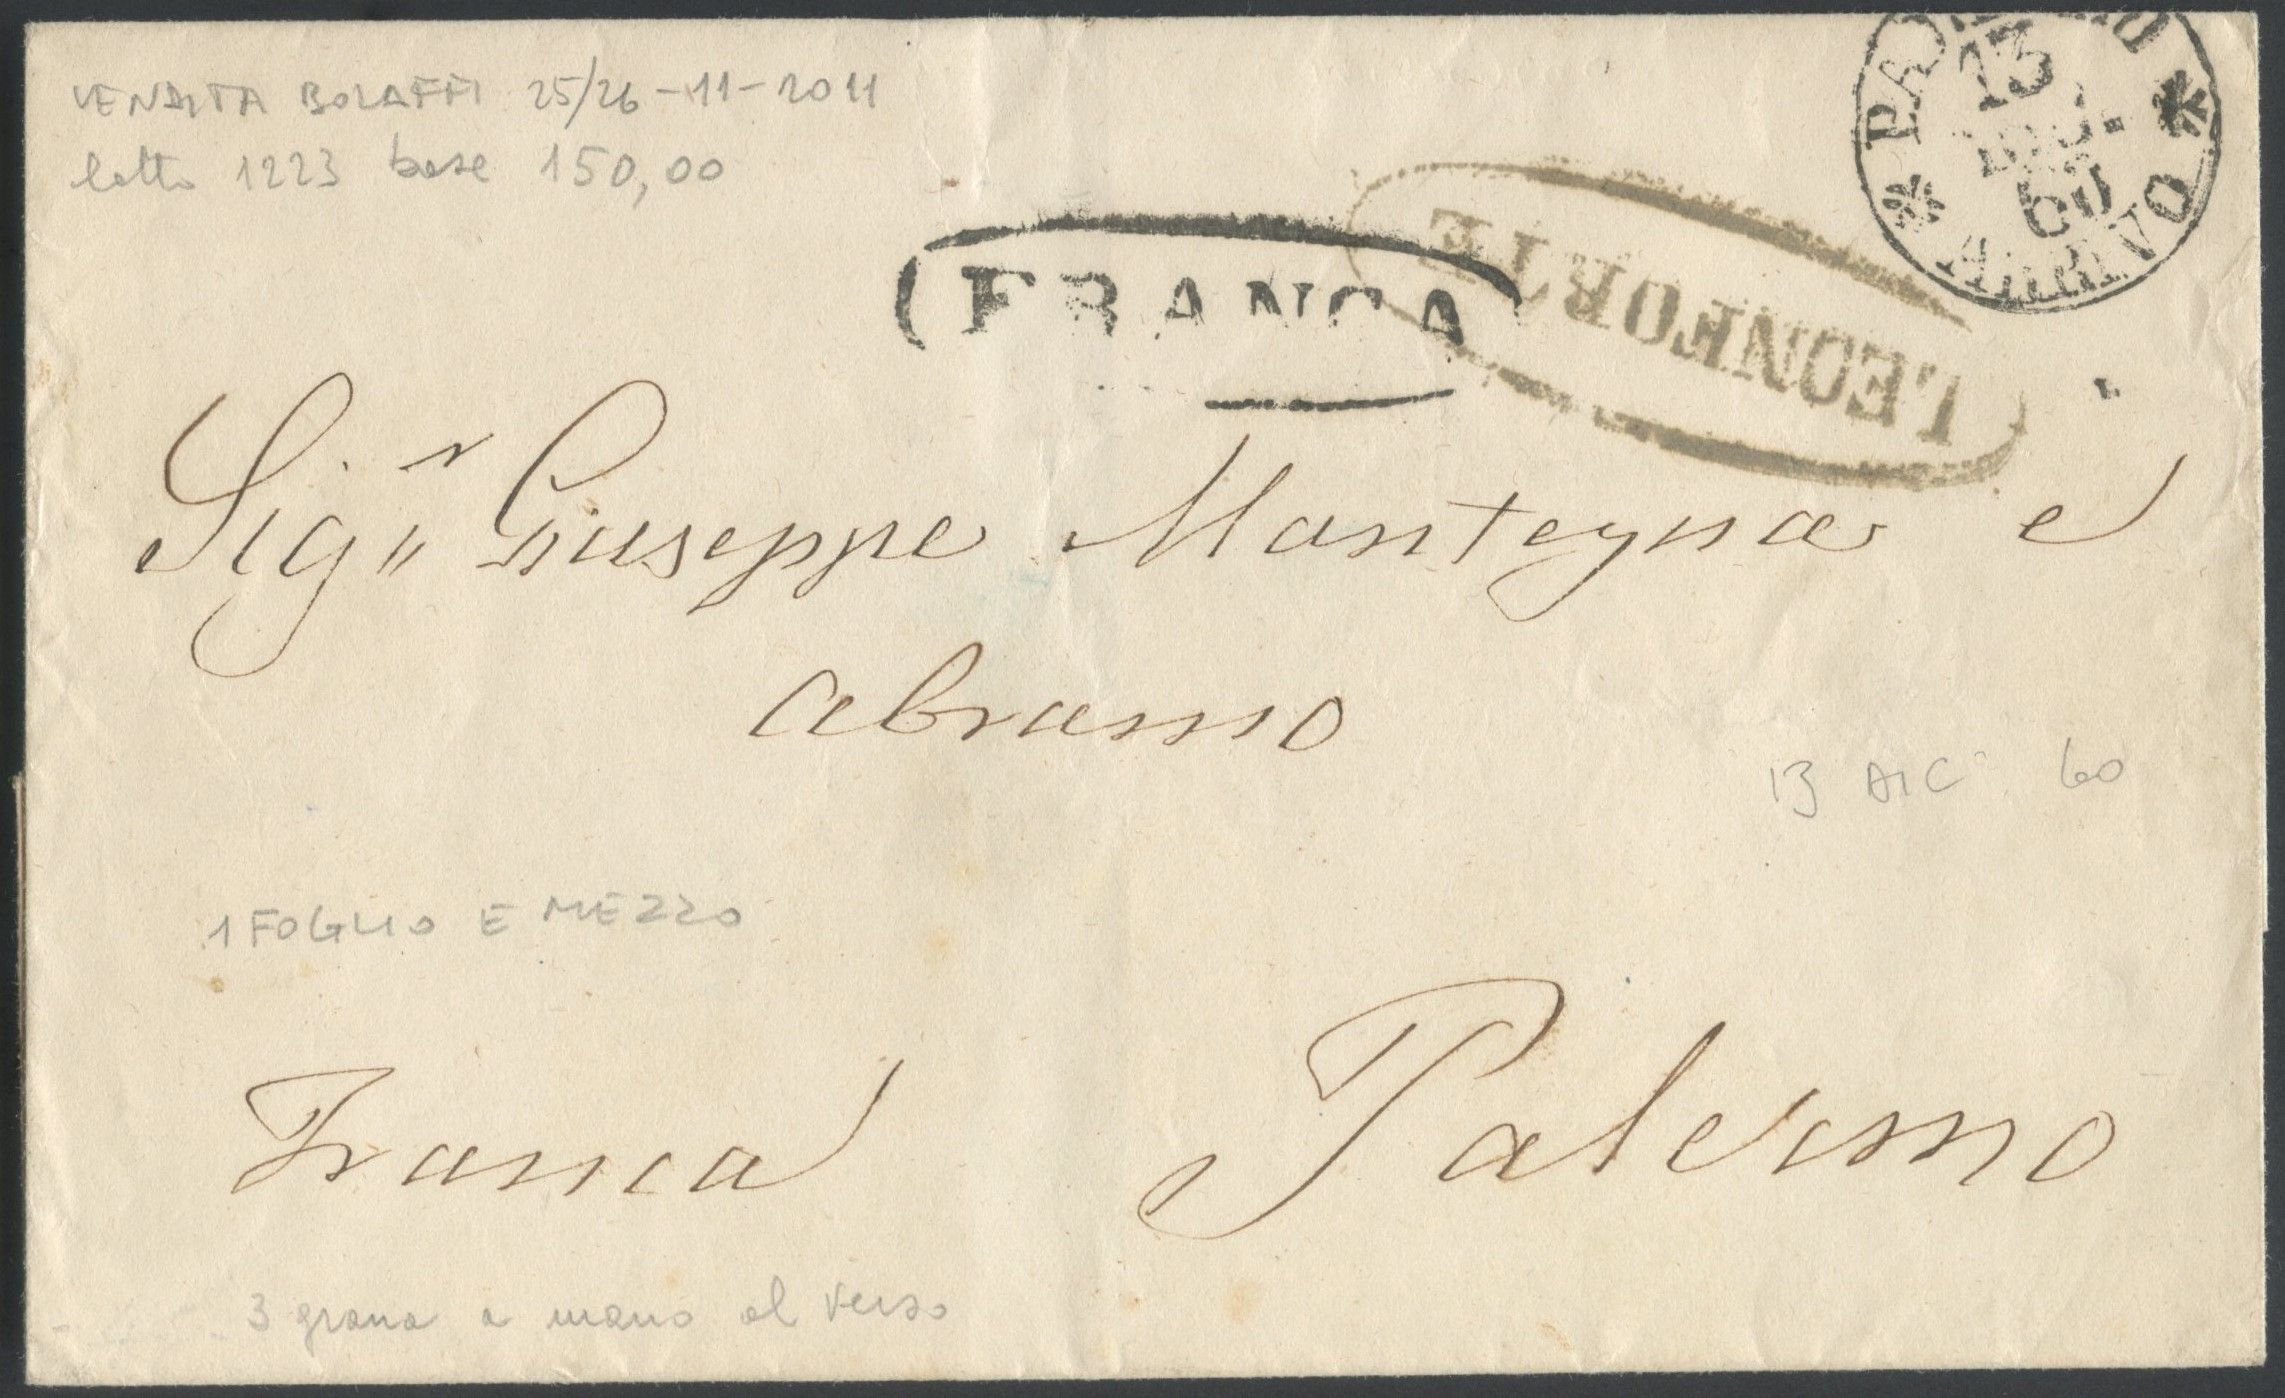 VENDITA BOLAFFI 25/26-11-2011
lotto 1223 base 150,00
13
DIC.
60
ARRIVO
FRANCA
LEONFORTE
Sig.r Giuseppe Mantegna e
Abramo
13 DIC 60
1 FOGLIO E MEZZO
Franca
Palermo
3 grana a mano al verso